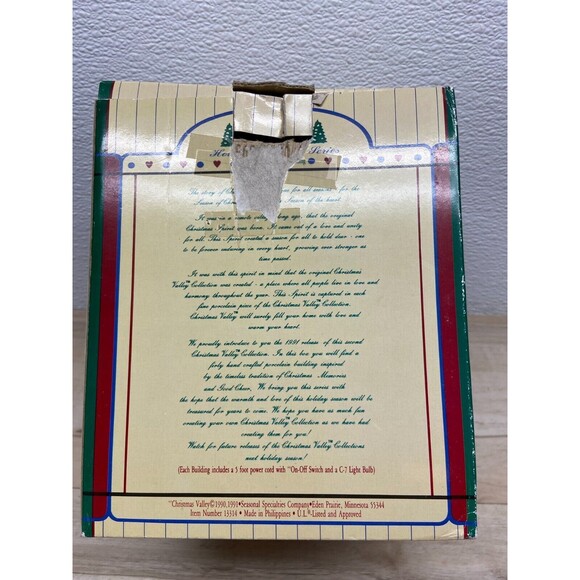 Series
The story of for all for the
Season of Season of the heart.
It was in a remote long ago, that the original
Christmas Spirit was born. It came out of a love and unity
for all. This Spirit created a season for all to hold dear - one
to be forever enduring in every heart, growing ever stronger as
time passed.
It was with this spirit in mind that the original Christmas
Valley Collection was created - a place where all people live in love and
harmony throughout the year. This Spirit is captured in each
fine porcelain piece of the Christmas Valley™ Collection.
Christmas Valley™ will surely fill your home with love and
warm your heart.
We proudly introduce to you the 1991 release of this second
Christmas Valley™ Collection. In this box you will find a
finely hand crafted porcelain building inspired
by the timeless tradition of Christmas Memories
and Good Cheer. We bring you this series with
the hope that the warmth and love of this holiday season will be
treasured for years to come. We hope you have as much fun
creating your own Christmas Valley™ Collection as we have had
creating them for you!
Watch for future releases of the Christmas Valley™ Collections
next holiday season!
(Each Building includes a 5 foot power cord with "On-Off Switch and a C-7 Light Bulb)
™Christmas Valley©1990,1991•Seasonal Specialties Company•Eden Prairie, Minnesota 55344
Item Number 13314 • Made in Philippines • U.L.®-Listed and Approved